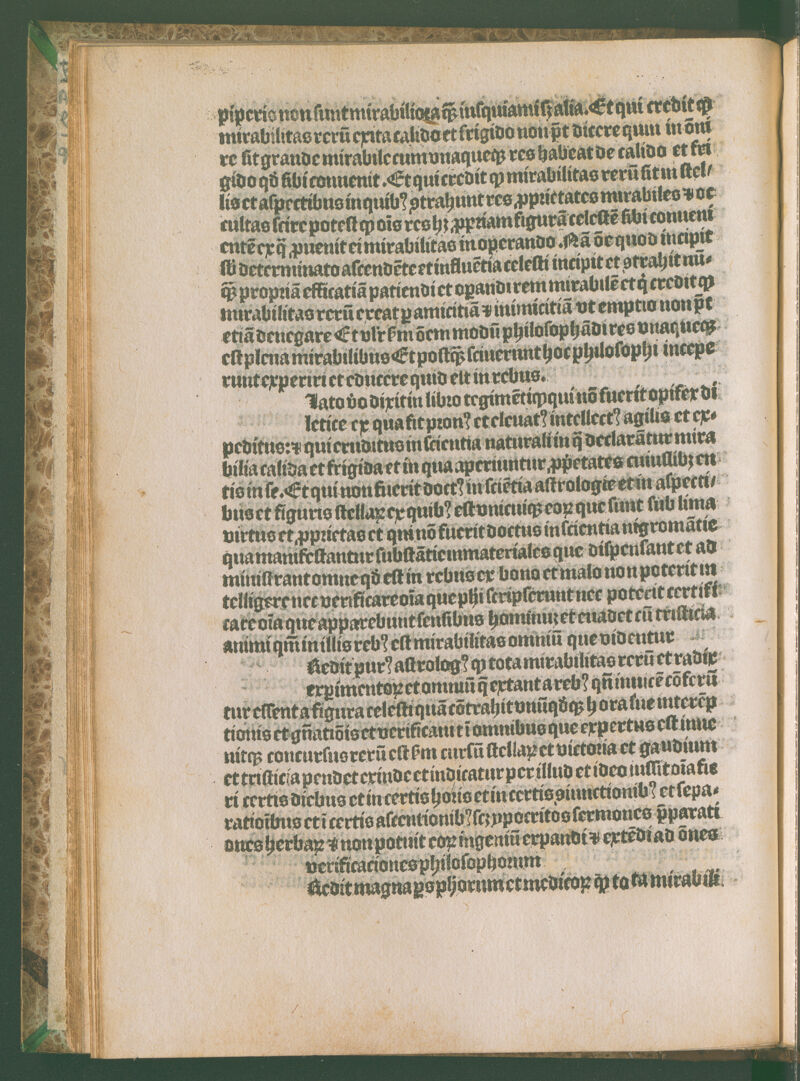 piperis non sunt mirabilioꝛa ꝙ̃ iusquiami sꝫ alia. Et qui credit ꝙ
mirabilitas rerū exita calido et frigido non põt dicere quin in õni
re sit grande mirabile cum vnaqueqꝫ res habeat de calido et fri
gido qđ sibi conuenit. Et qui credit ꝙ mirabilitas rerū sit in stel/
lis et aspectibus in quibꝰ ꝯtrahunt res ꝓprietates mirabiles ⁊ oc
cultas scire potest ꝙ oīs res hꝫ ꝓpriam figurā celestē sibi conueni
entē ex q̄ ꝓuenit ei mirabilitas in operando. Nā õe quod incipit
sb̄ determinato ascendēte et influētia celesti incipit et ꝯtrahit nū⸗
ꝙ̃ propriā efficatiā patiendi et opandi rem mirabilē et q̇ credit ꝙ
mirabilitas rerū exeat ꝑ amicitiā ⁊ inimicitiā vt emptio non põt
etiā denegare Et vlr̄ sm̄ õem modū philosophādi res vnaqueqꝫ
est plena mirabilibus Et postꝙ̃ sciuerunt hoc philosophi incepe
runt experiri et educere quid est in rebus.
Plato v̊o dixit in libro tegimēti ꝙ qui nō fuerit opifex di
letice ex qua fit pronꝰ et eleuatꝰ intellectꝰ agilis et ex⸗
peditus: ⁊ qui eruditus in scientia naturali in q̄ declarātur mira
bilia calida et frigida et in qua aperiuntur ꝓp̄etates cuiuslibꝫ en
tis in se. Et qui non fuerit doctꝰ in sciētia astrologie et in aspecti/
bus et figuris stellaꝝ ex quibꝰ est vnicuiqꝫ eoꝝ que sunt sub lima
virtus et ꝓprietas et qui nō fuerit doctus in scientia nigromātie
qua manifestantur substātie immateriales que dispensant et ad
ministrant omne qđ est in rebus ex bono et malo non poterit in
telligere nec verificare oīa que phi scripserunt nec poterit certifi
care oīa que apparebunt sensibus hominuꝫ et euadet cū tristicia
animi qm̄ in illis rebꝰ est mirabilitas omniū que videntur
Redit purꝰ astrologꝰ ꝙ tota mirabilitas rerū et radix
experimentoꝝ et omniū q̄ extant a rebꝰ qn̄ inuicē cōferū
tur essent a figura celesti quā cōtrahit vnūqđqꝫ hora sue interēp
tionis et gn̄atiōis et verificant ī omnibus que expertus est inue
nitqꝫ concursus rerū est sm̄ cursū stellaꝝ et victoria et gaudium
et tristicia pendet exinde et indicatur per illud et ideo iussit oīa fie
ri certis diebus et in certis horis et in certis ꝯiunctionibꝰ et sepa⸗
ratioībus et ī certis ascentionibꝰ scꝫ ypocritos sermones p̄parati
ones herbaꝝ ⁊ non potuit eoꝝ ingeniū expandi ⁊ extēdi ad ōnes
verificaciones philosophorum
Redit magna ꝑs phorum et medicoꝝ ꝙ tota mirabili